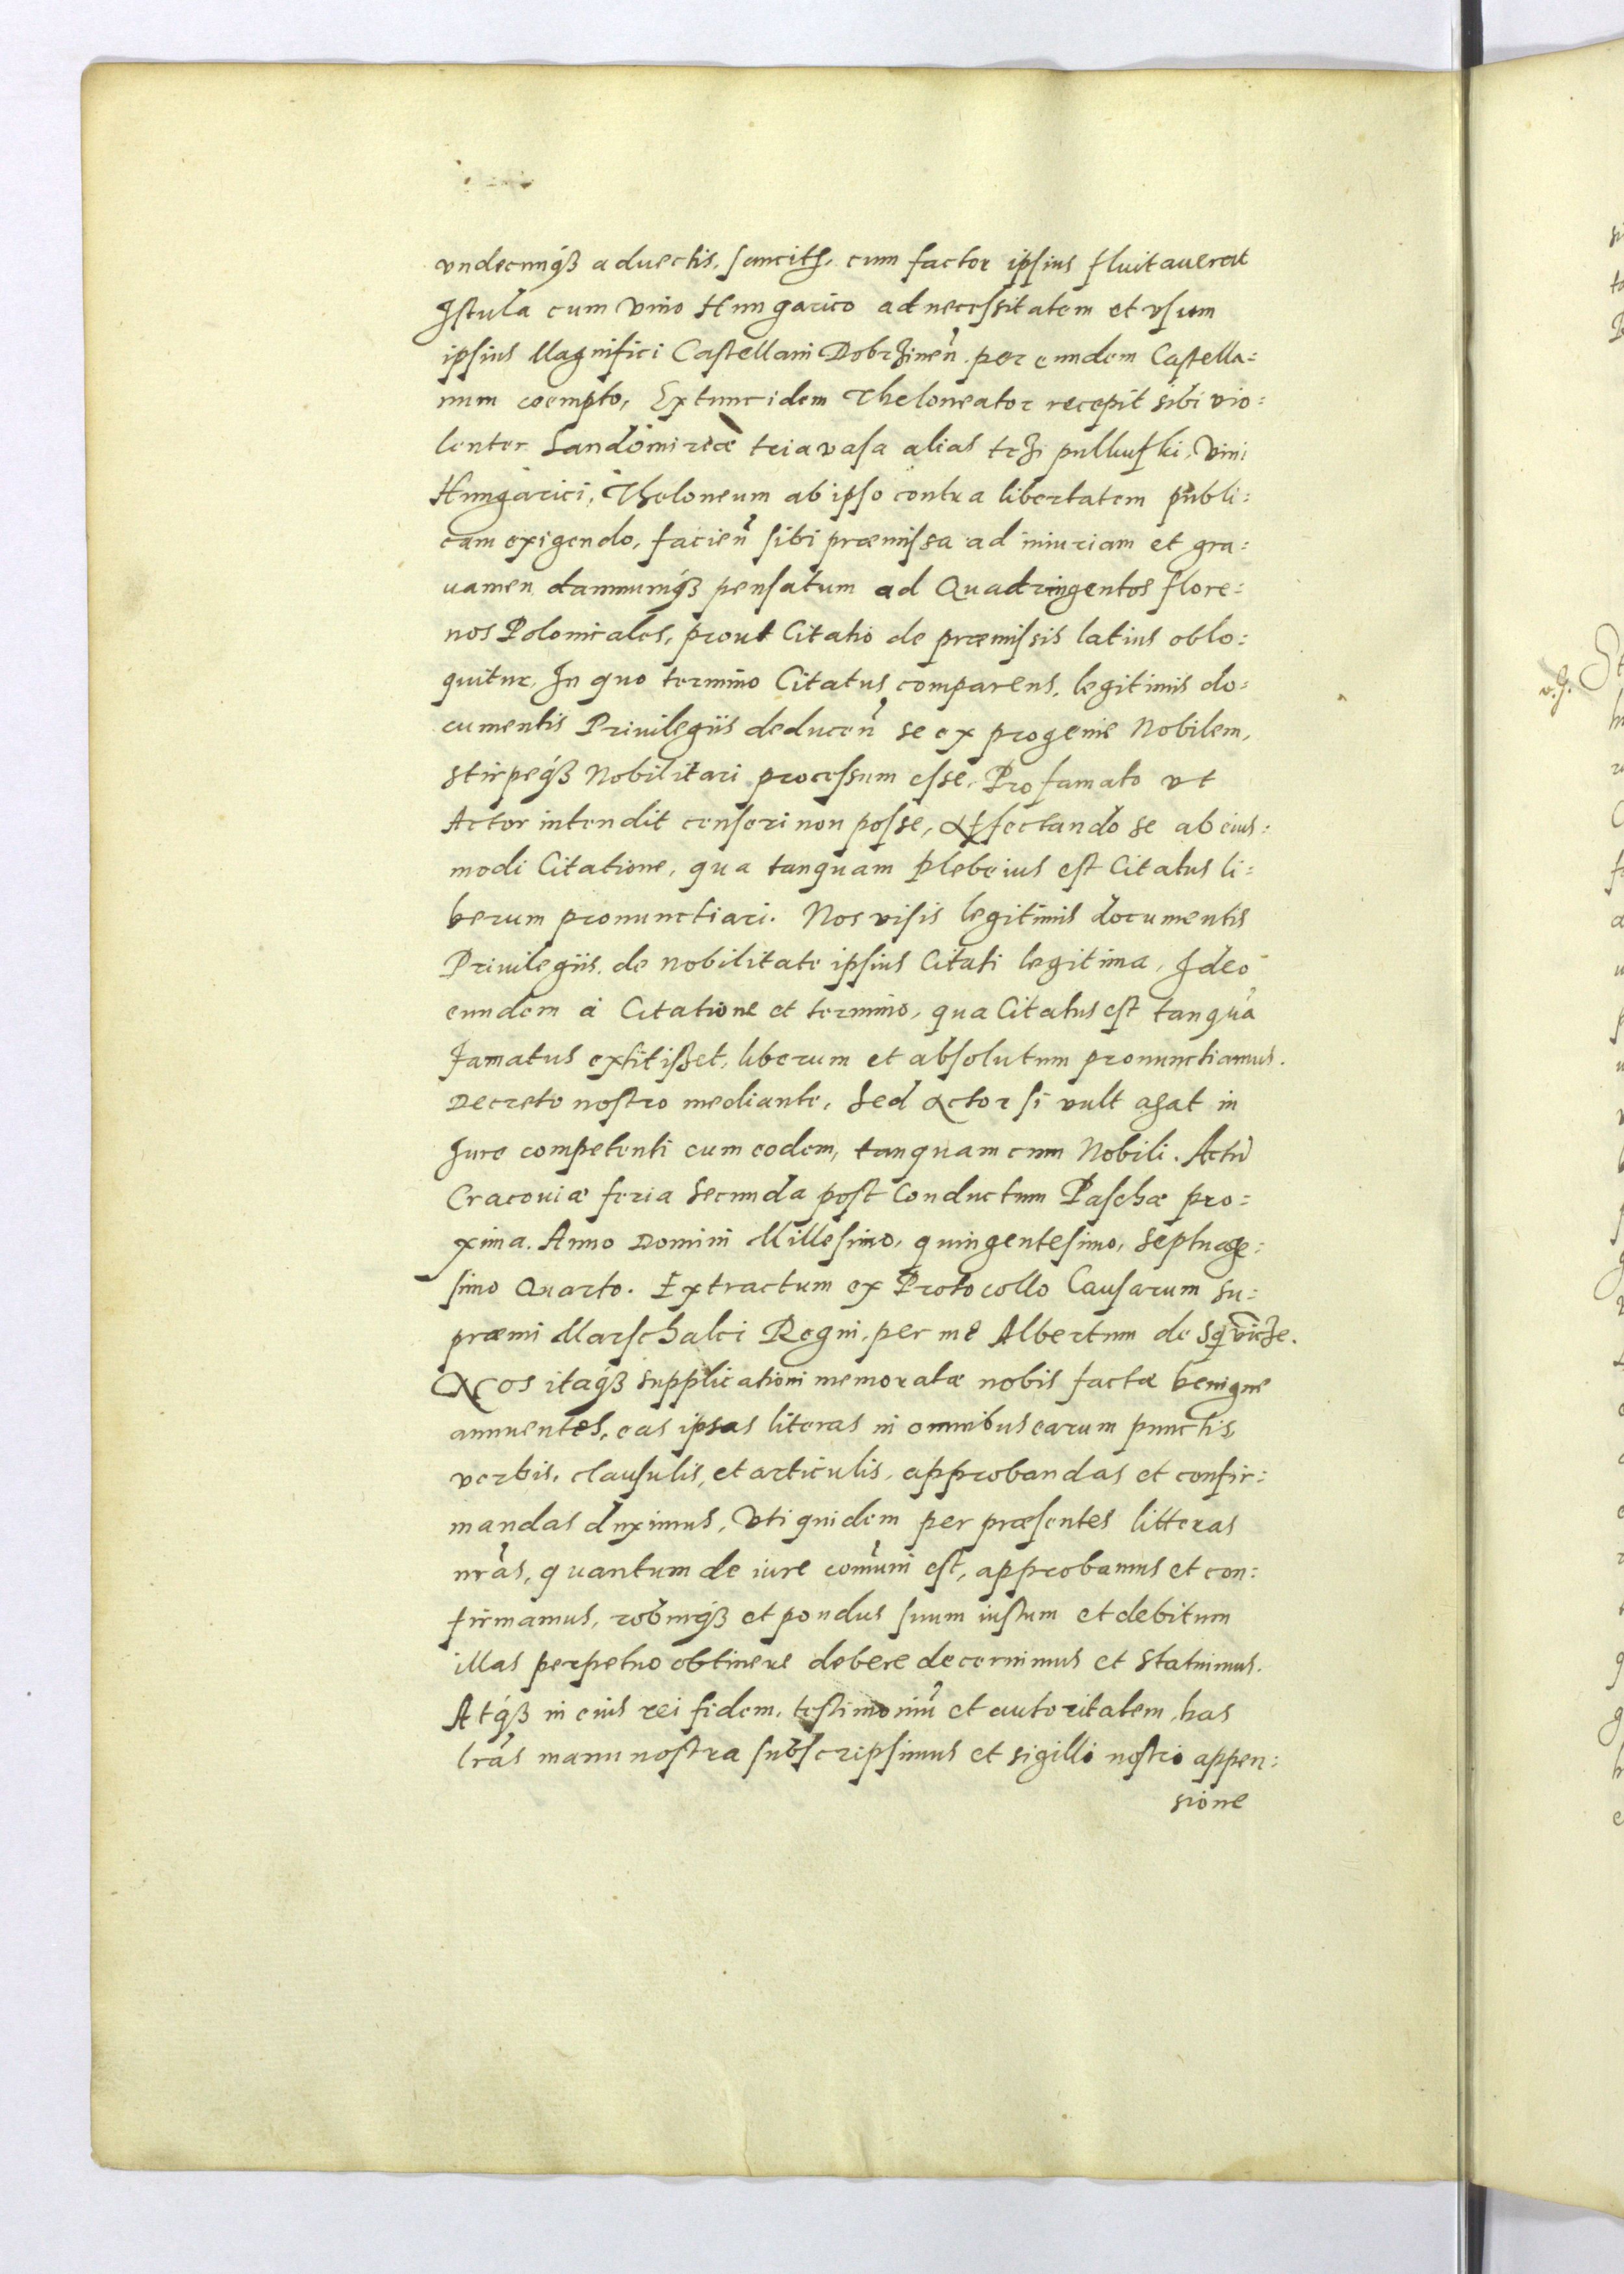 vndecunqȝ aduectis, sancitȩ, cum factor ipsius fluitauerat
Istula cum Vino Hungarico ad necessitatem et vsum
ipsius Magnifici Castellani Dobrzinen̄ per eundem Castella:
num coempto, Extunc idem Theloneator recepit sibi vio:
lenter Sandomiriæ tria vasa alias trzi pulkufki, Vini
Hungarici, Theloneum ab ipso contra libertatem publi:
cam exigendo, facien̄ sibi præmissa ad iniuriam et gra:
uamen damnumqȝ pensatum ad Quadringentos flore:
nos Polonicales, prout Citatio de præmissis latius oblo:
quitur, In quo termino Citatus comparens, legitimis do:
cumentis Priuilegiis deducen̄ se ex progenie Nobilem,
stirpeqȝ Nobilitari processum esse, Pro famato vt
Actor intendit censeri non posse, Affectando se ab eius:
modi Citatione, qua tanquam plebeius est Citatus li:
berum pronunctiari. Nos visis legitimis documentis
Priuilegiis, de nobilitate ipsius Citati legitima, Ideo
eundem à Citatione et termino, qua Citatus est tanquā
famatus extitisset, liberum et absolutum pronunctiamus.
Decreto nostro mediante, Sed Actor si vult agat in
Iure competenti cum eodem, tanquam cum Nobili. Actū
Cracouiæ feria Secunda post Conductum Paschæ pro:
xima. Anno Domini Millesimo, quingentesimo, Septuage:
simo Quarto. Extractum ex Protocollo Causarum Su:
præmi Marschalci Regni, per me Albertum de
Nos itaqȝ supplicationi memoratæ nobis factæ benigne
annuentes, eas ipsas literas in omnibus earum punctis,
verbis, clausulis, et articulis, approbandas et confir:
mandas duximus, Vti quidem per præsentes litteras
nr̄as, quantum de iure com̄uni est, approbamus et con:
firmamus, roburqȝ et pondus suum iustum et debitum
illas perpetuo obtinere debere decernimus et statuimus.
Atqȝ in eius rei fidem, testimoniū et autoritatem, has
lr̄as manu nostra subscripsimus et sigilli nostri appen:
sione